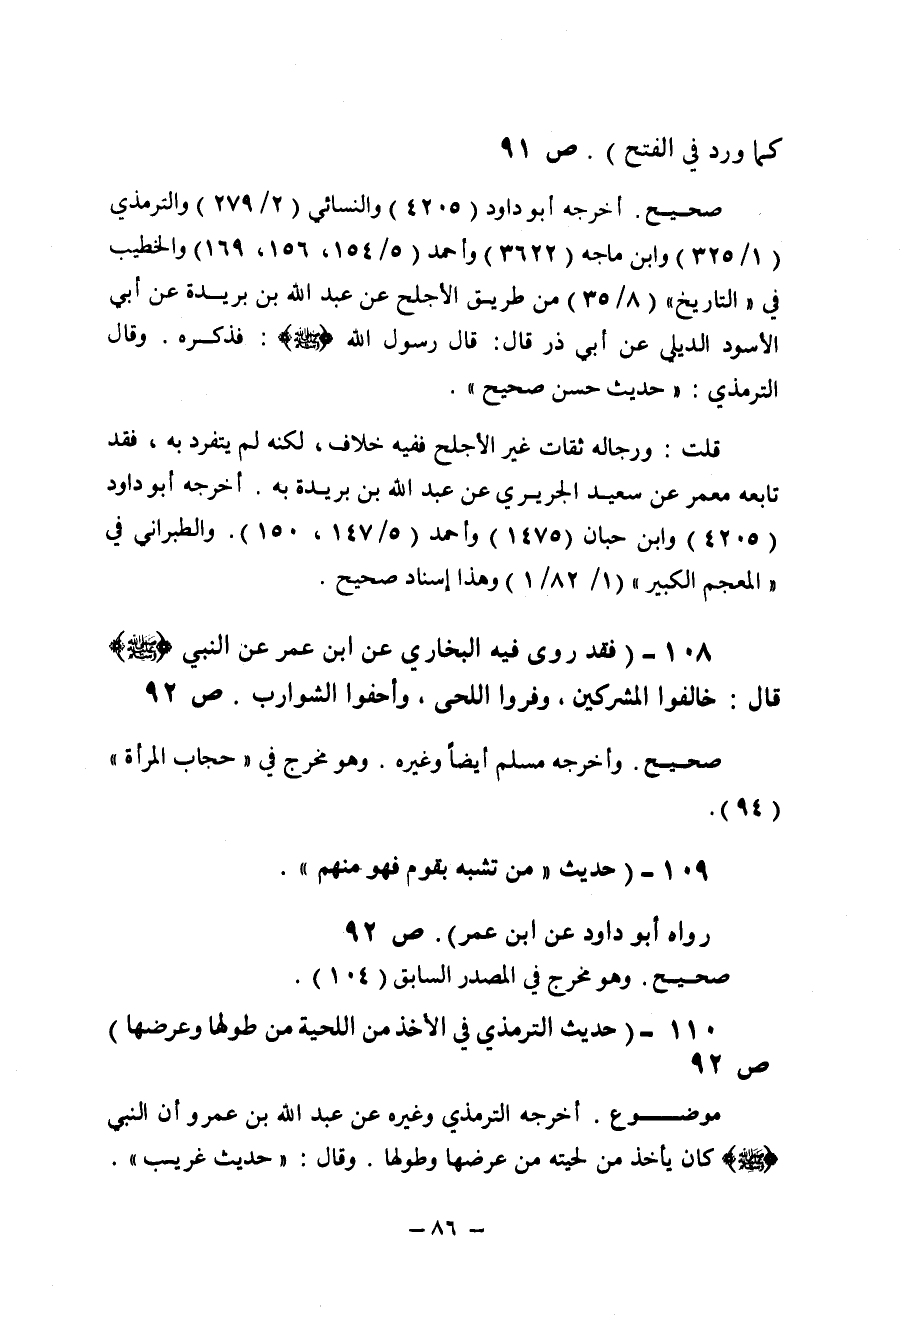 كما ورد في الفتح ) . ص ٩١
صحيح . أخرجه أبو داود ( ٤٢٠٥ ) والنسائي ( ٢/ ٢٧٩ ) والترمذي
( ١/ ٣٢٥ ) وابن ماجه ( ٣٦٢٢ ) وأحمد ( ٥/ ١٥٤، ١٥٦، ١٦٩) والخطيب
في « التاريخ» ( ٨/ ٣٥ ) من طريق الأجلح عن عبد الله بن بريدة عن أبي
الأسود الديلي عن أبي ذر قال: قال رسول الله ﴿ﷺ﴾ : فذكره . وقال
الترمذي : « حديث حسن صحيح » .
قلت : ورجاله ثقات غير الأجلح ففيه خلاف ، لكنه لم يتفرد به ، فقد
تابعه معمر عن سعيد الجريري عن عبد الله بن بريدة به . أخرجه أبو داود
( ٤٢٠٥ ) وابن حبان (١٤٧٥ ) وأحمد ( ٥/ ١٤٧ ، ١٥٠ ). والطبراني في
« المعجم الكبير » (١/ ٨٢/ ١ ) وهذا إسناد صحيح .
١٠٨ - ( فقد روى فيه البخاري عن ابن عمر عن النبي ﴿ﷺ﴾
قال : خالفوا المشركين ، وفروا اللحى ، وأحفوا الشوارب . ص ٩٢
صحيح . وأخرجه مسلم أيضاً وغيره . وهو مخرج في « حجاب المرأة »
( ٩٤ ) .
١٠٩ - ( حديث « من تشبه بقوم فهو منهم » .
رواه أبو داود عن ابن عمر) . ص ٩٢
صحيح . وهو مخرج في المصدر السابق ( ١٠٤ ) .
١١٠ - ( حديث الترمذي في الأخذ من اللحية من طولها وعرضها )
ص ٩٢
موضوع . أخرجه الترمذي وغيره عن عبد الله بن عمرو أن النبي
﴿ﷺ﴾ كان يأخذ من لحيته من عرضها وطولها . وقال : « حديث غريب » .
- ٨٦ -